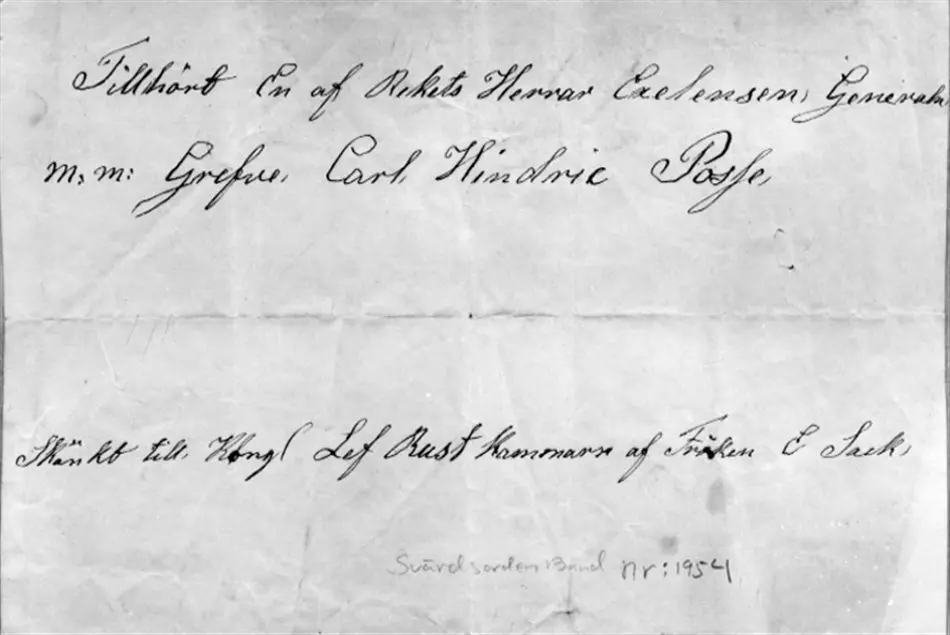 Tillhört En af Rikets Herrar Exelensen, Generaln
m, m: Grefve, Carl, Hindric Posse,
Skänkt till, Kongl Lif Rust Kammarn af Fröken E Sack,
Svärdsordens Band nr: 1954